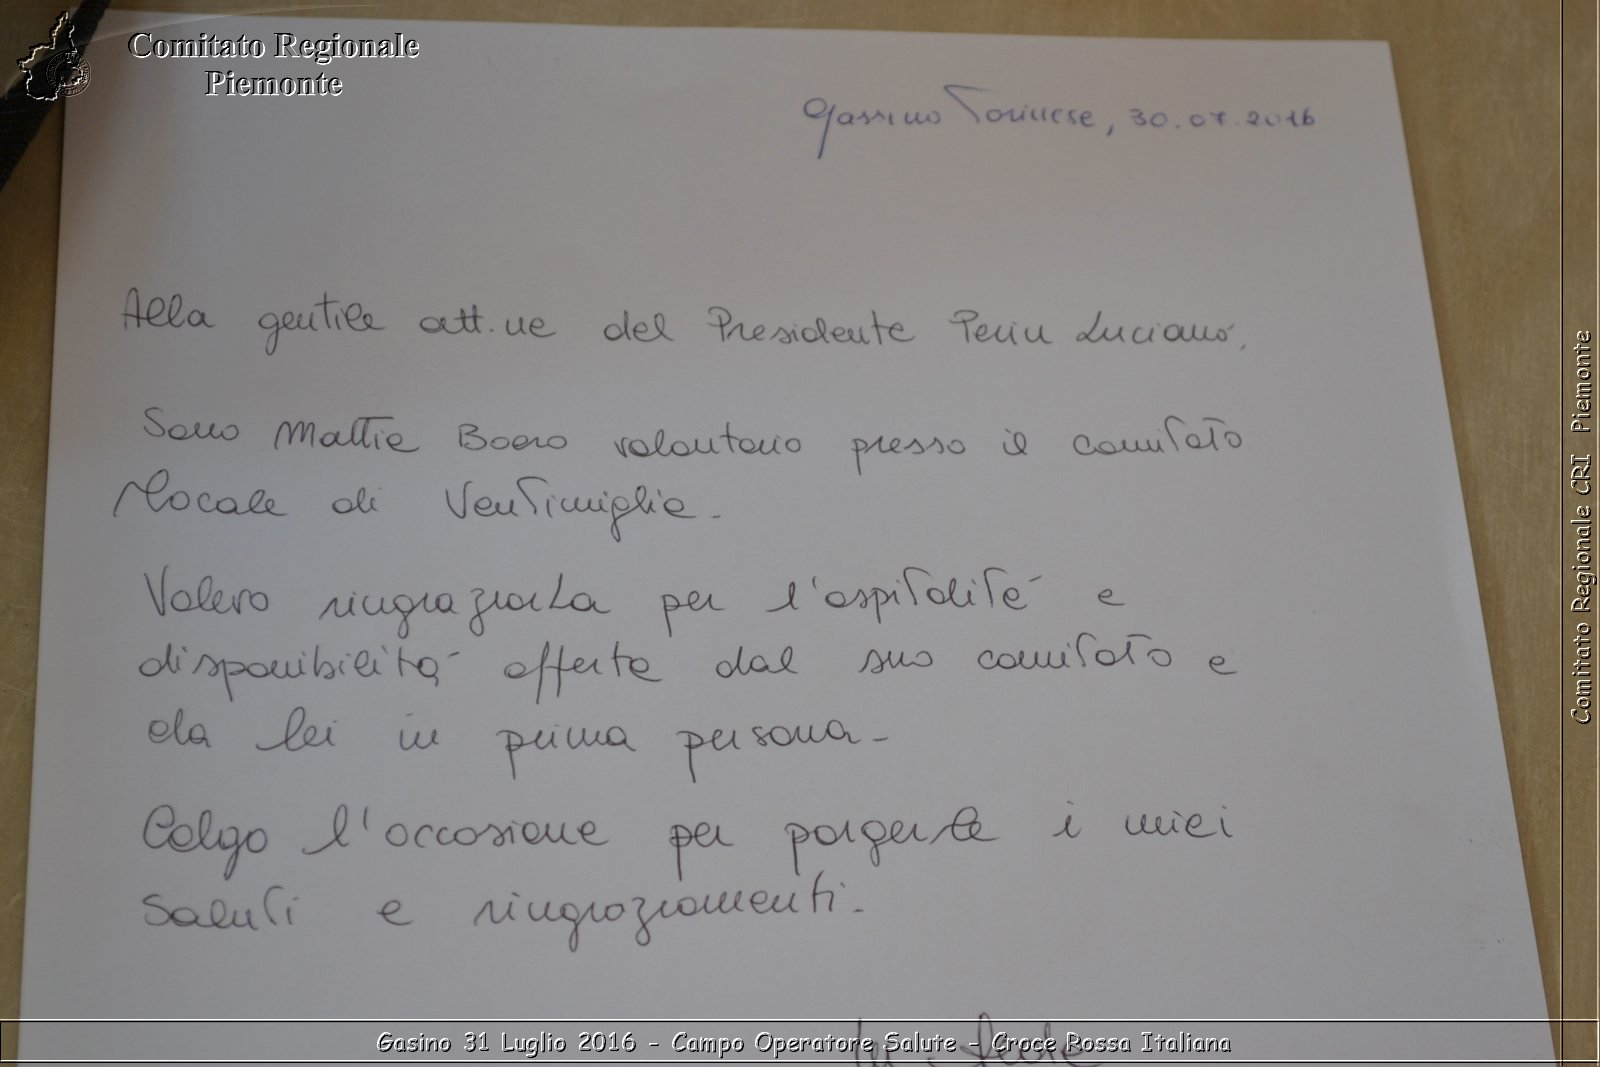 Comitato Regionale
Piemonte
Gassino Torinese, 30.07.2016
Alla gentile att.ne del Presidente Perin Luciano,
Sono Mattia Boero volontario presso il comitato
locale di Ventimiglia.
Volevo ringraziarLa per l'ospitalità e
disponibilità offerta dal suo comitato e
da lei in prima persona.
Colgo l'occasione per porgerle i miei
saluti e ringraziamenti.
Gasino 31 Luglio 2016 - Campo Operatore Salute - Croce Rossa Italiana
Comitato Regionale CRI Piemonte